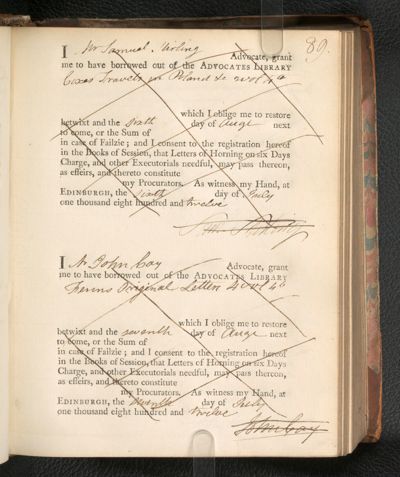 89.
I Mr Samuel Stirling Advocate, grant
me to have borrowed out of the ADVOCATES LIBRARY
Coxes Travels in Poland &c 2 vol 4to
which I oblige me to restore
betwixt and the sixth day of Augt next
to come, or the Sum of
in case of Failzie; and I consent to the registration hereof
in the Books of Session, that Letters of Horning on six Days
Charge, and other Executorials needful, may pass thereon,
as effeirs, and thereto constitute
my Procurators. As witness my Hand, at
EDINBURGH, the sixth day of July
one thousand eight hundred and twelve
I Mr John Cay Advocate, grant
me to have borrowed out of the ADVOCATES LIBRARY
Fenns Original Letters 4 vol 4to
which I oblige me to restore
betwixt and the seventh day of Augt next
to come, or the Sum of
in case of Failzie; and I consent to the registration hereof
in the Books of Session, that Letters of Horning on six Days
Charge, and other Executorials needful, may pass thereon,
as effeirs, and thereto constitute
my Procurators. As witness my Hand, at
EDINBURGH, the seventh day of July
one thousand eight hundred and twelve
John Cay